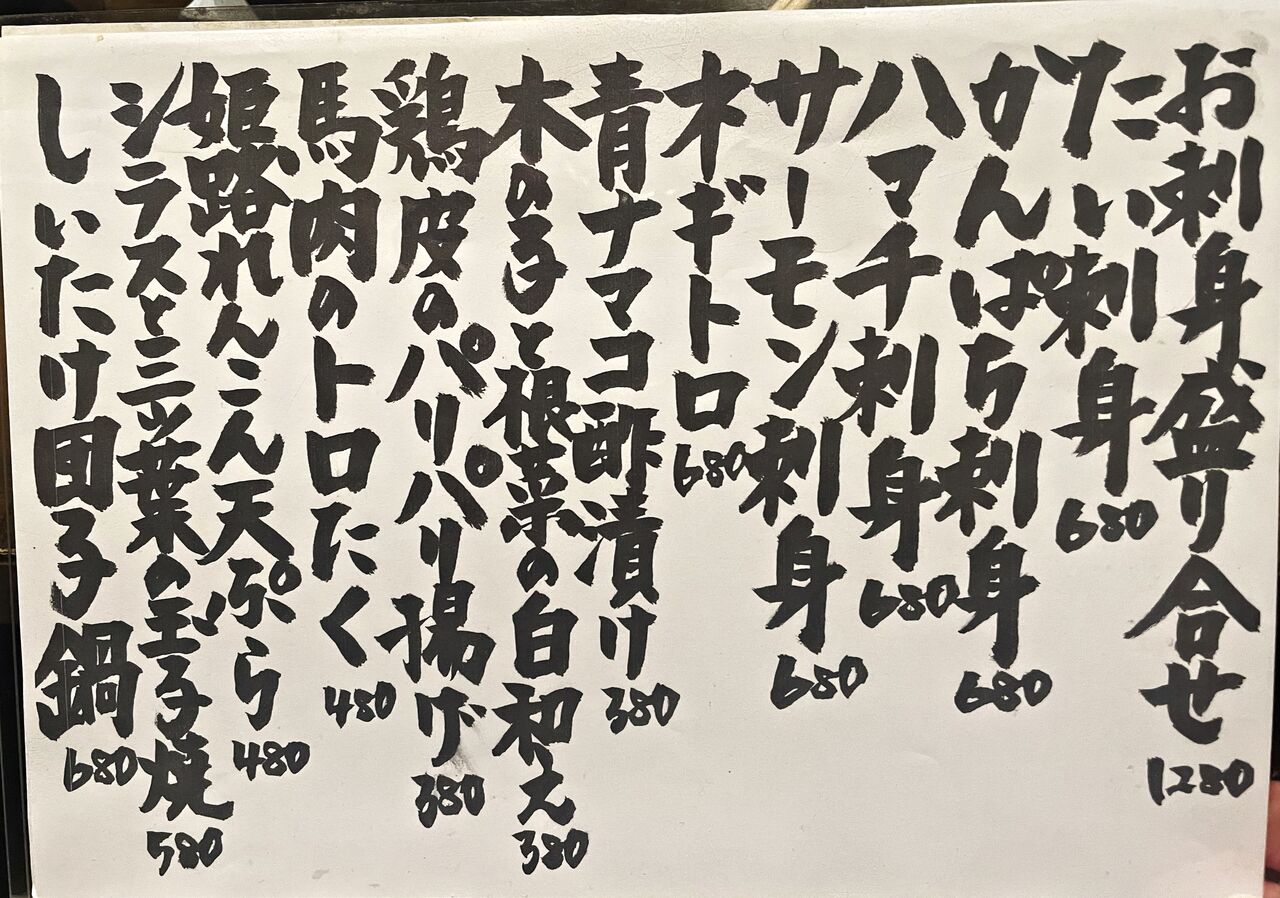 お刺身盛り合せ 1280
たい刺身 680
かんぱち刺身 680
ハマチ刺身 680
サーモン刺身 680
オギトロ 680
青ナマコ酢漬け 380
木の子と根菜の白和え 380
鶏皮のパリパリ揚げ 380
馬肉のトロたく 480
姫路れんこん天ぷら 480
シラスと三ッ葉の玉子焼 580
しいたけ団子鍋 680